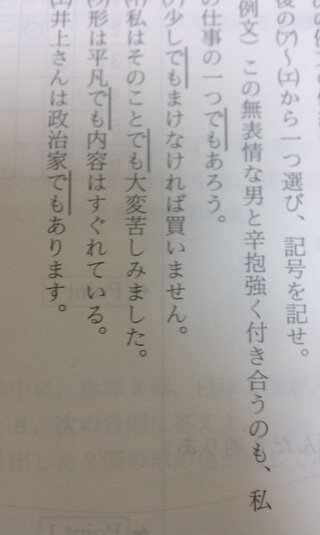 後の㋐〜㋓から一つ選び、記号を記せ。
例文）この無表情な男と辛抱強く付き合うのも、私
の仕事の一つでもあろう。
少しでもまけなければ買いません。
私はそのことでも大変苦しみました。
形は平凡でも内容はすぐれている。
井上さんは政治家でもあります。